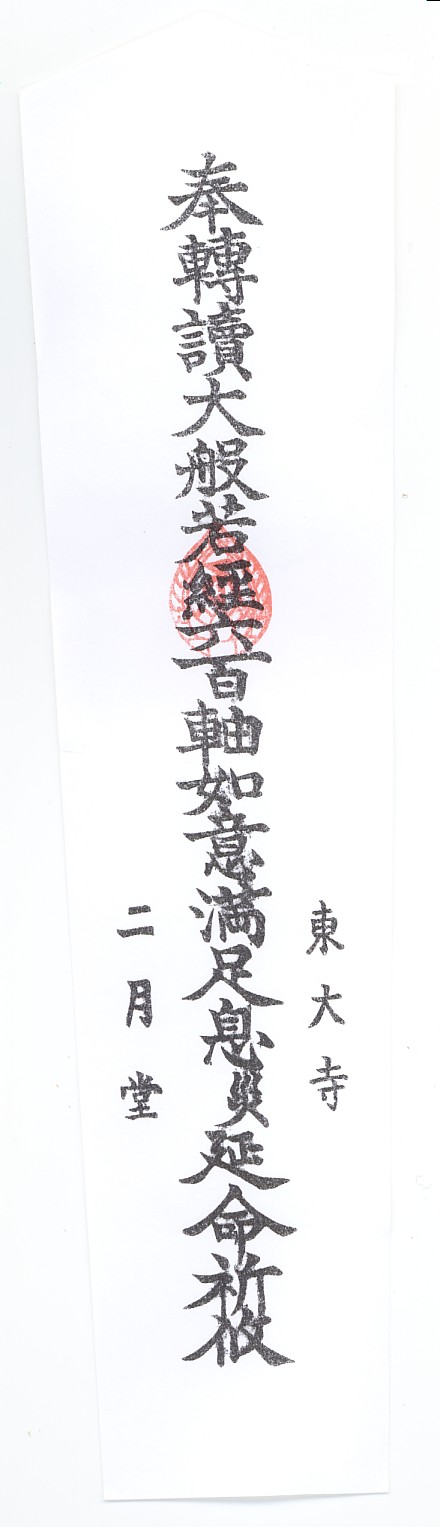 東大寺
奉轉讀大般若經六百軸如意滿足息災延命祈攸
二月堂